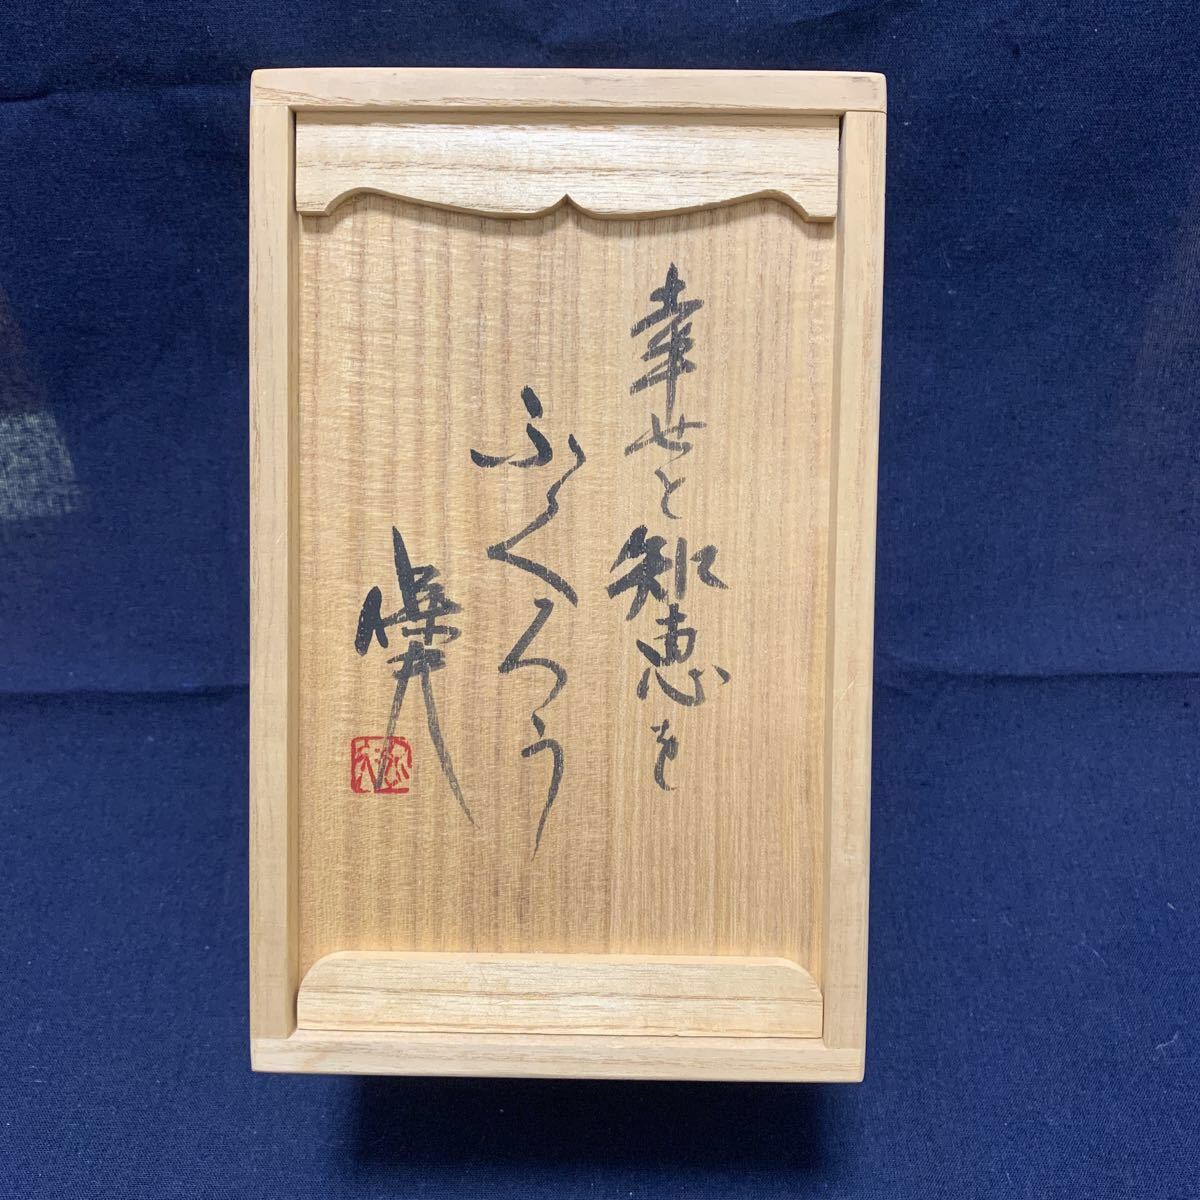 幸せと知恵を
ふくろう